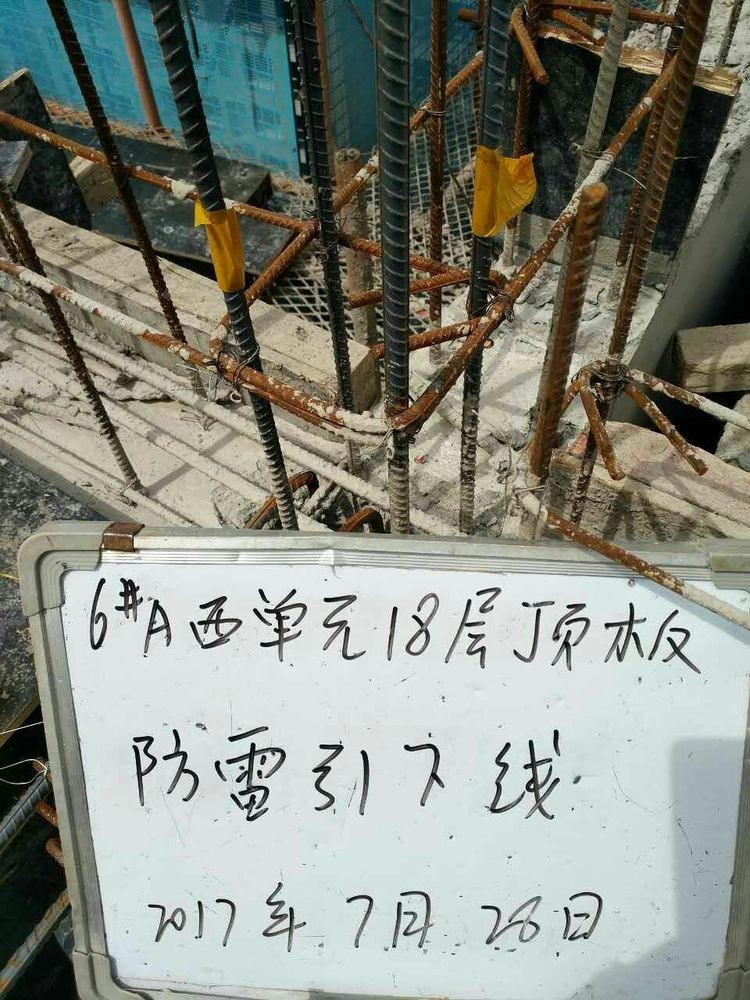 6#A西单元18层顶板
防雷引下线
2017年7月28日